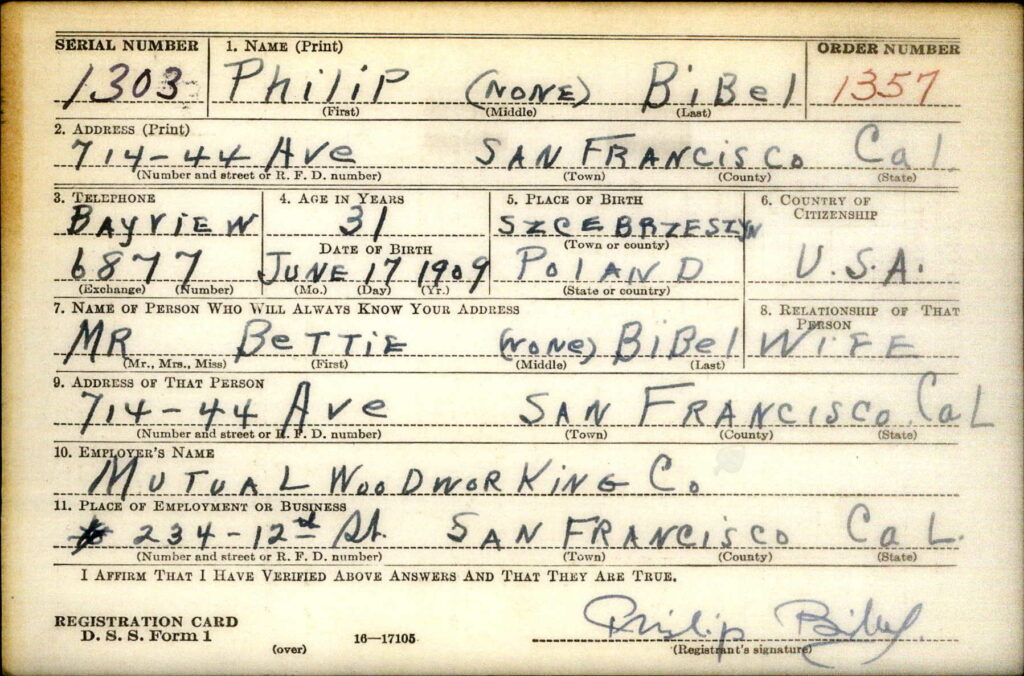 SERIAL NUMBER 1. NAME (Print) ORDER NUMBER
1303 Philip (NONE) BiBel 1357
(First) (Middle) (Last)
2. ADDRESS (Print)
714-44 Ave SAN FRANCISCO Cal
(Number and street or R. F. D. number) (Town) (County) (State)
3. TELEPHONE 4. AGE IN YEARS 5. PLACE OF BIRTH 6. COUNTRY OF CITIZENSHIP
BAYVIEW 31 SZCEBRZESZYN
DATE OF BIRTH (Town or county)
6877 JUNE 17 1909 POLAND U.S.A.
(Exchange) (Number) (Mo.) (Day) (Yr.) (State or country)
7. NAME OF PERSON WHO WILL ALWAYS KNOW YOUR ADDRESS 8. RELATIONSHIP OF THAT PERSON
MR BeTTIE (NONe) BiBel WIFE
(Mr., Mrs., Miss) (First) (Middle) (Last)
9. ADDRESS OF THAT PERSON
714-44 Ave SAN FRANCISCO CaL
(Number and street or R. F. D. number) (Town) (County) (State)
10. EMPLOYER'S NAME
MUTUAL WOODWORKING Co
11. PLACE OF EMPLOYMENT OR BUSINESS
234-12th St. SAN FRANCISCO CaL.
(Number and street or R. F. D. number) (Town) (County) (State)
I AFFIRM THAT I HAVE VERIFIED ABOVE ANSWERS AND THAT THEY ARE TRUE.
REGISTRATION CARD
D. S. S. Form 1 16—17105 Philip Bibel
(over) (Registrant's signature)